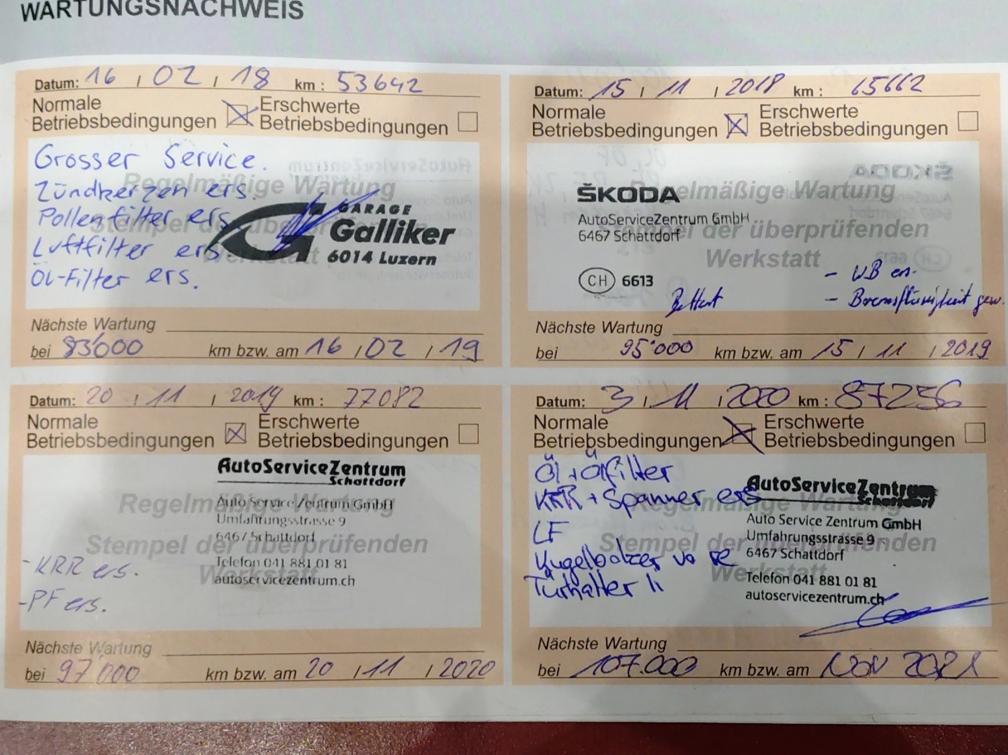 WARTUNGSNACHWEIS
Datum: 16 / 02 / 18 km : 53642
Normale
Betriebsbedingungen
Erschwerte
Betriebsbedingungen
Grosser Service.
Zündkerzen ers.
Pollenfilter ers.
Luftfilter ers
Öl-Filter ers.
Regelmäßige Wartung
Stempel der überprüfenden
Werkstatt
GARAGE
Galliker
6014 Luzern
Nächste Wartung
bei 83'000 km bzw. am 16 / 02 / 19
Datum: 15 / 11 / 2018 km : 65662
Normale
Betriebsbedingungen
Erschwerte
Betriebsbedingungen
Regelmäßige Wartung
Stempel der überprüfenden
Werkstatt
ŠKODA
AutoServiceZentrum GmbH
6467 Schattdorf
CH 6613
- Bremsflüssigkeit gew.
Nächste Wartung
bei 95'000 km bzw. am 15 / 11 / 2019
Datum: 20 / 11 / 2019 km : 77082
Normale
Betriebsbedingungen
Erschwerte
Betriebsbedingungen
Regelmäßige Wartung
Stempel der überprüfenden
Werkstatt
AutoServiceZentrum
Schattdorf
Auto Service Zentrum GmbH
Umfahrungsstrasse 9
6467 Schattdorf
Telefon 041 881 01 81
autoservicezentrum.ch
- KRR ers.
- PF ers.
Nächste Wartung
bei 97'000 km bzw. am 20 / 11 / 2020
Datum: 3 / 11 / 2020 km : 87256
Normale
Betriebsbedingungen
Erschwerte
Betriebsbedingungen
Öl + Ölfilter
KRR + Spanner ers
LF
Kugelbolzen vo re
Türhalter li
Regelmäßige Wartung
Stempel der überprüfenden
Werkstatt
AutoServiceZentrum
Schattdorf
Auto Service Zentrum GmbH
Umfahrungsstrasse 9
6467 Schattdorf
Telefon 041 881 01 81
autoservicezentrum.ch
Nächste Wartung
bei 107.000 km bzw. am Nov 2021